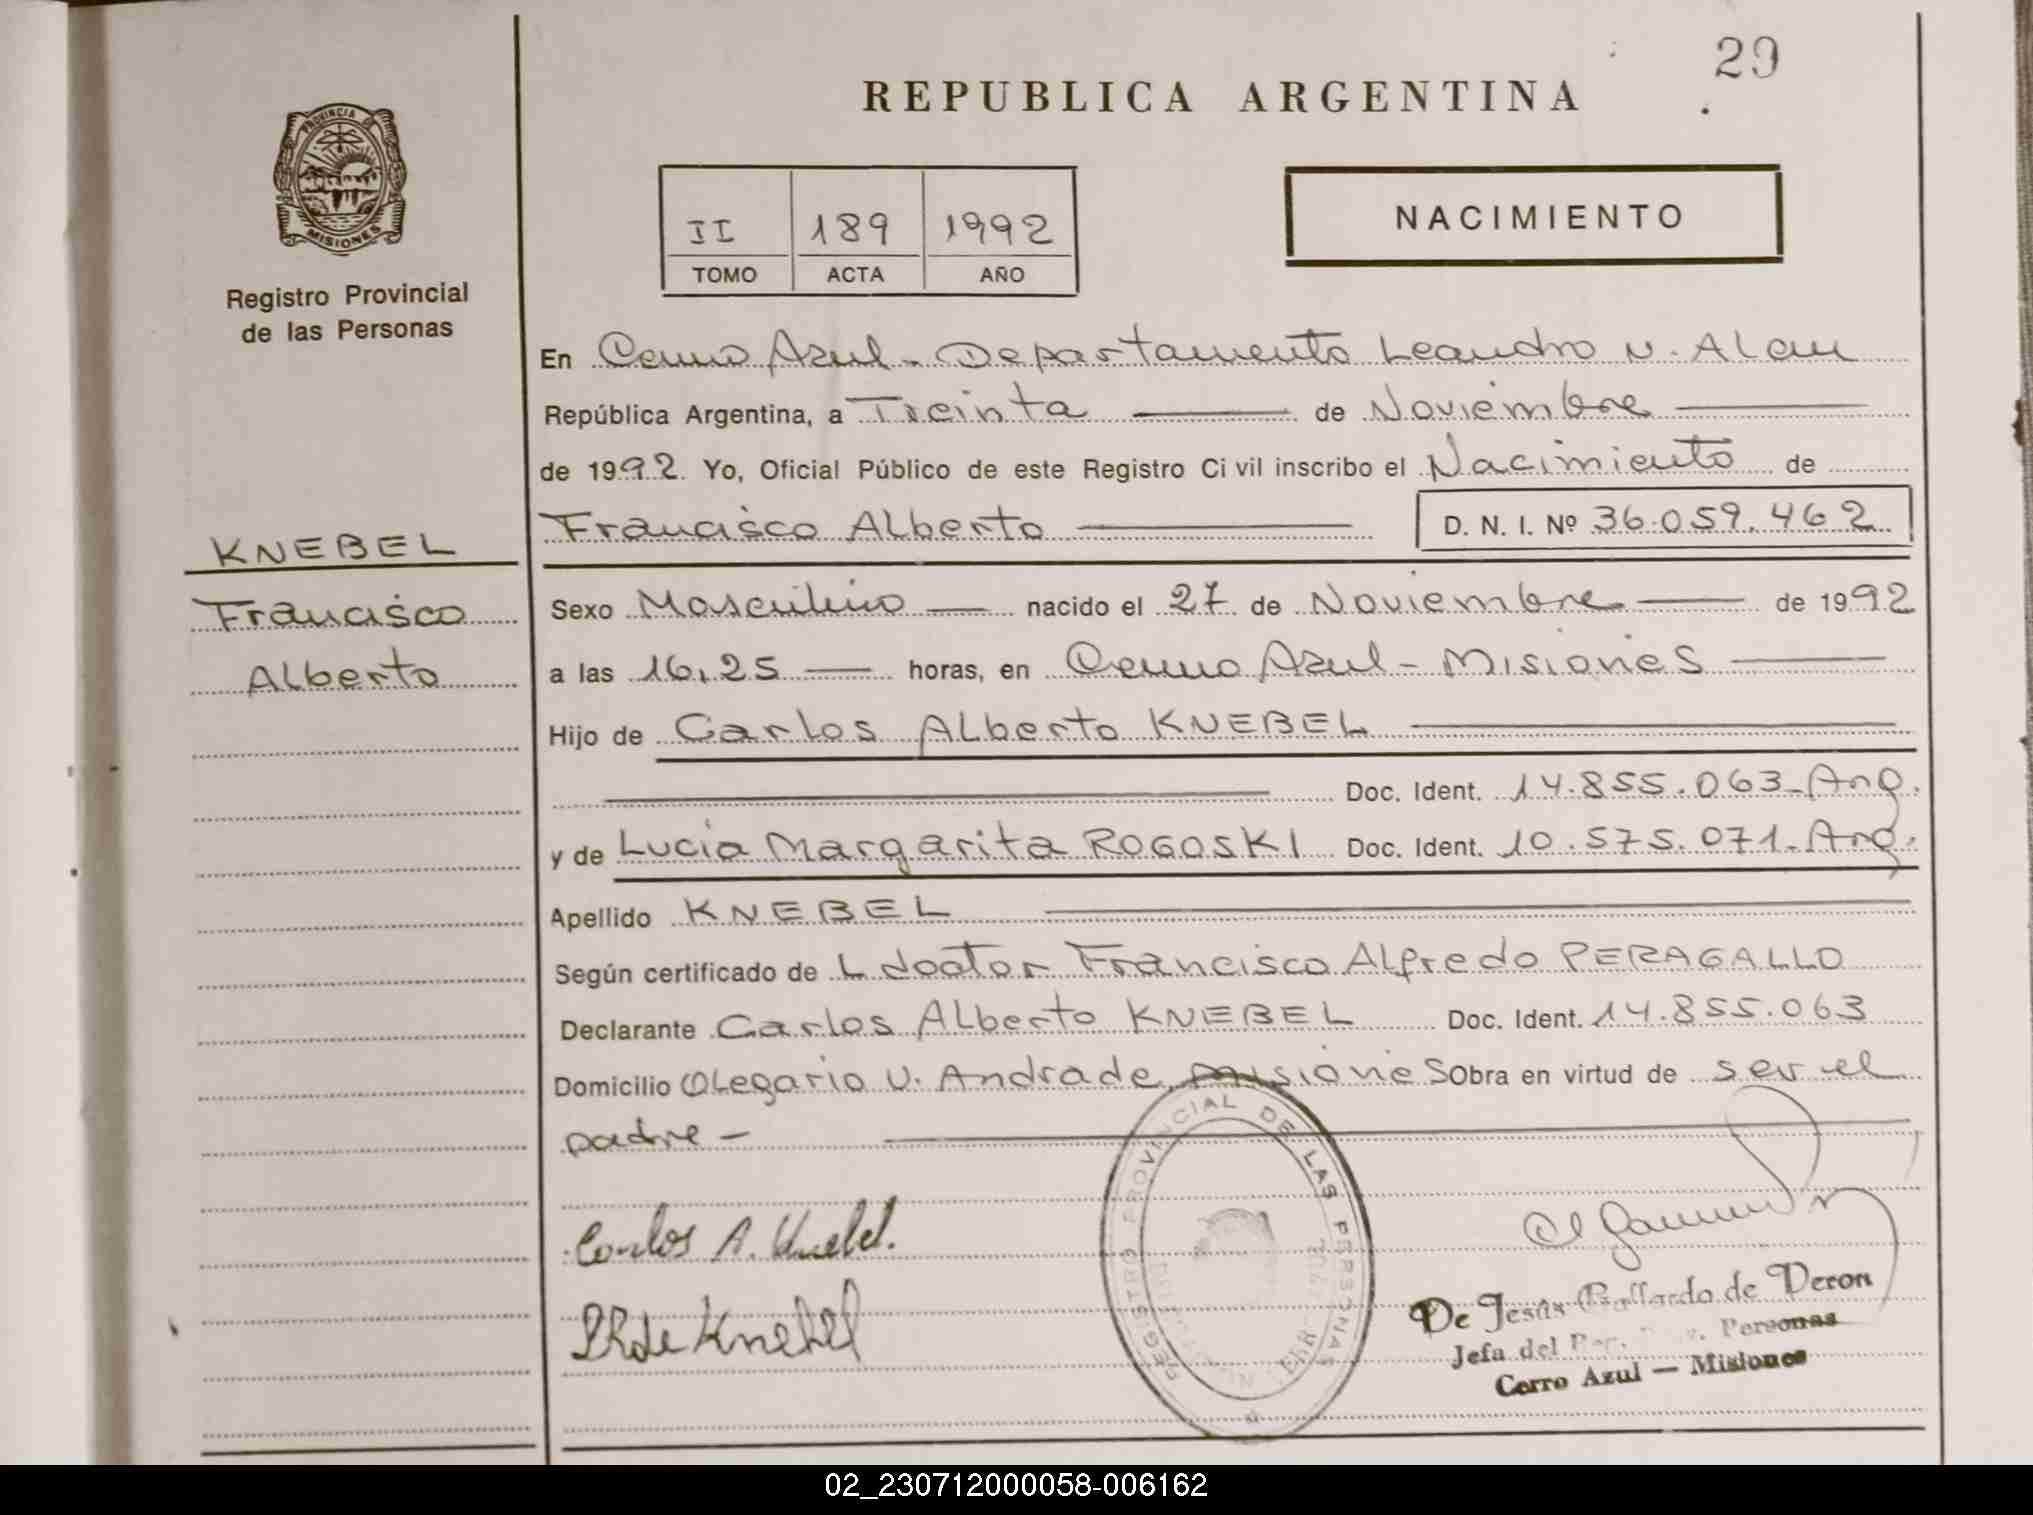 29
REPUBLICA ARGENTINA
PROVINCIA DE MISIONES
Registro Provincial
de las Personas
II 189 1992
TOMO ACTA AÑO
NACIMIENTO
En Cerro Azul - Departamento Leandro N. Alem
República Argentina, a Treinta de Noviembre
de 1992. Yo, Oficial Público de este Registro Civil inscribo el Nacimiento de
Francisco Alberto D. N. I. Nº 36.059.462
KNEBEL
Francisco
Alberto
Sexo Masculino nacido el 27 de Noviembre de 1992
a las 16,25 horas, en Cerro Azul - Misiones
Hijo de Carlos Alberto KNEBEL
Doc. Ident. 14.855.063-Arg.
y de Lucia Margarita ROGOSKI Doc. Ident. 10.575.071-Arg.
Apellido KNEBEL
Según certificado de L doctor Francisco Alfredo PERAGALLO
Declarante Carlos Alberto KNEBEL Doc. Ident. 14.855.063
Domicilio Olegario V. Andrade, Misiones Obra en virtud de ser el
padre -
REGISTRO PROVINCIAL DE LAS PERSONAS
Carlos A. Knebel.
de Knebel
De Jesús Gallardo de Veron
Jefa del Personas
Cerro Azul — Misiones
02_230712000058-006162